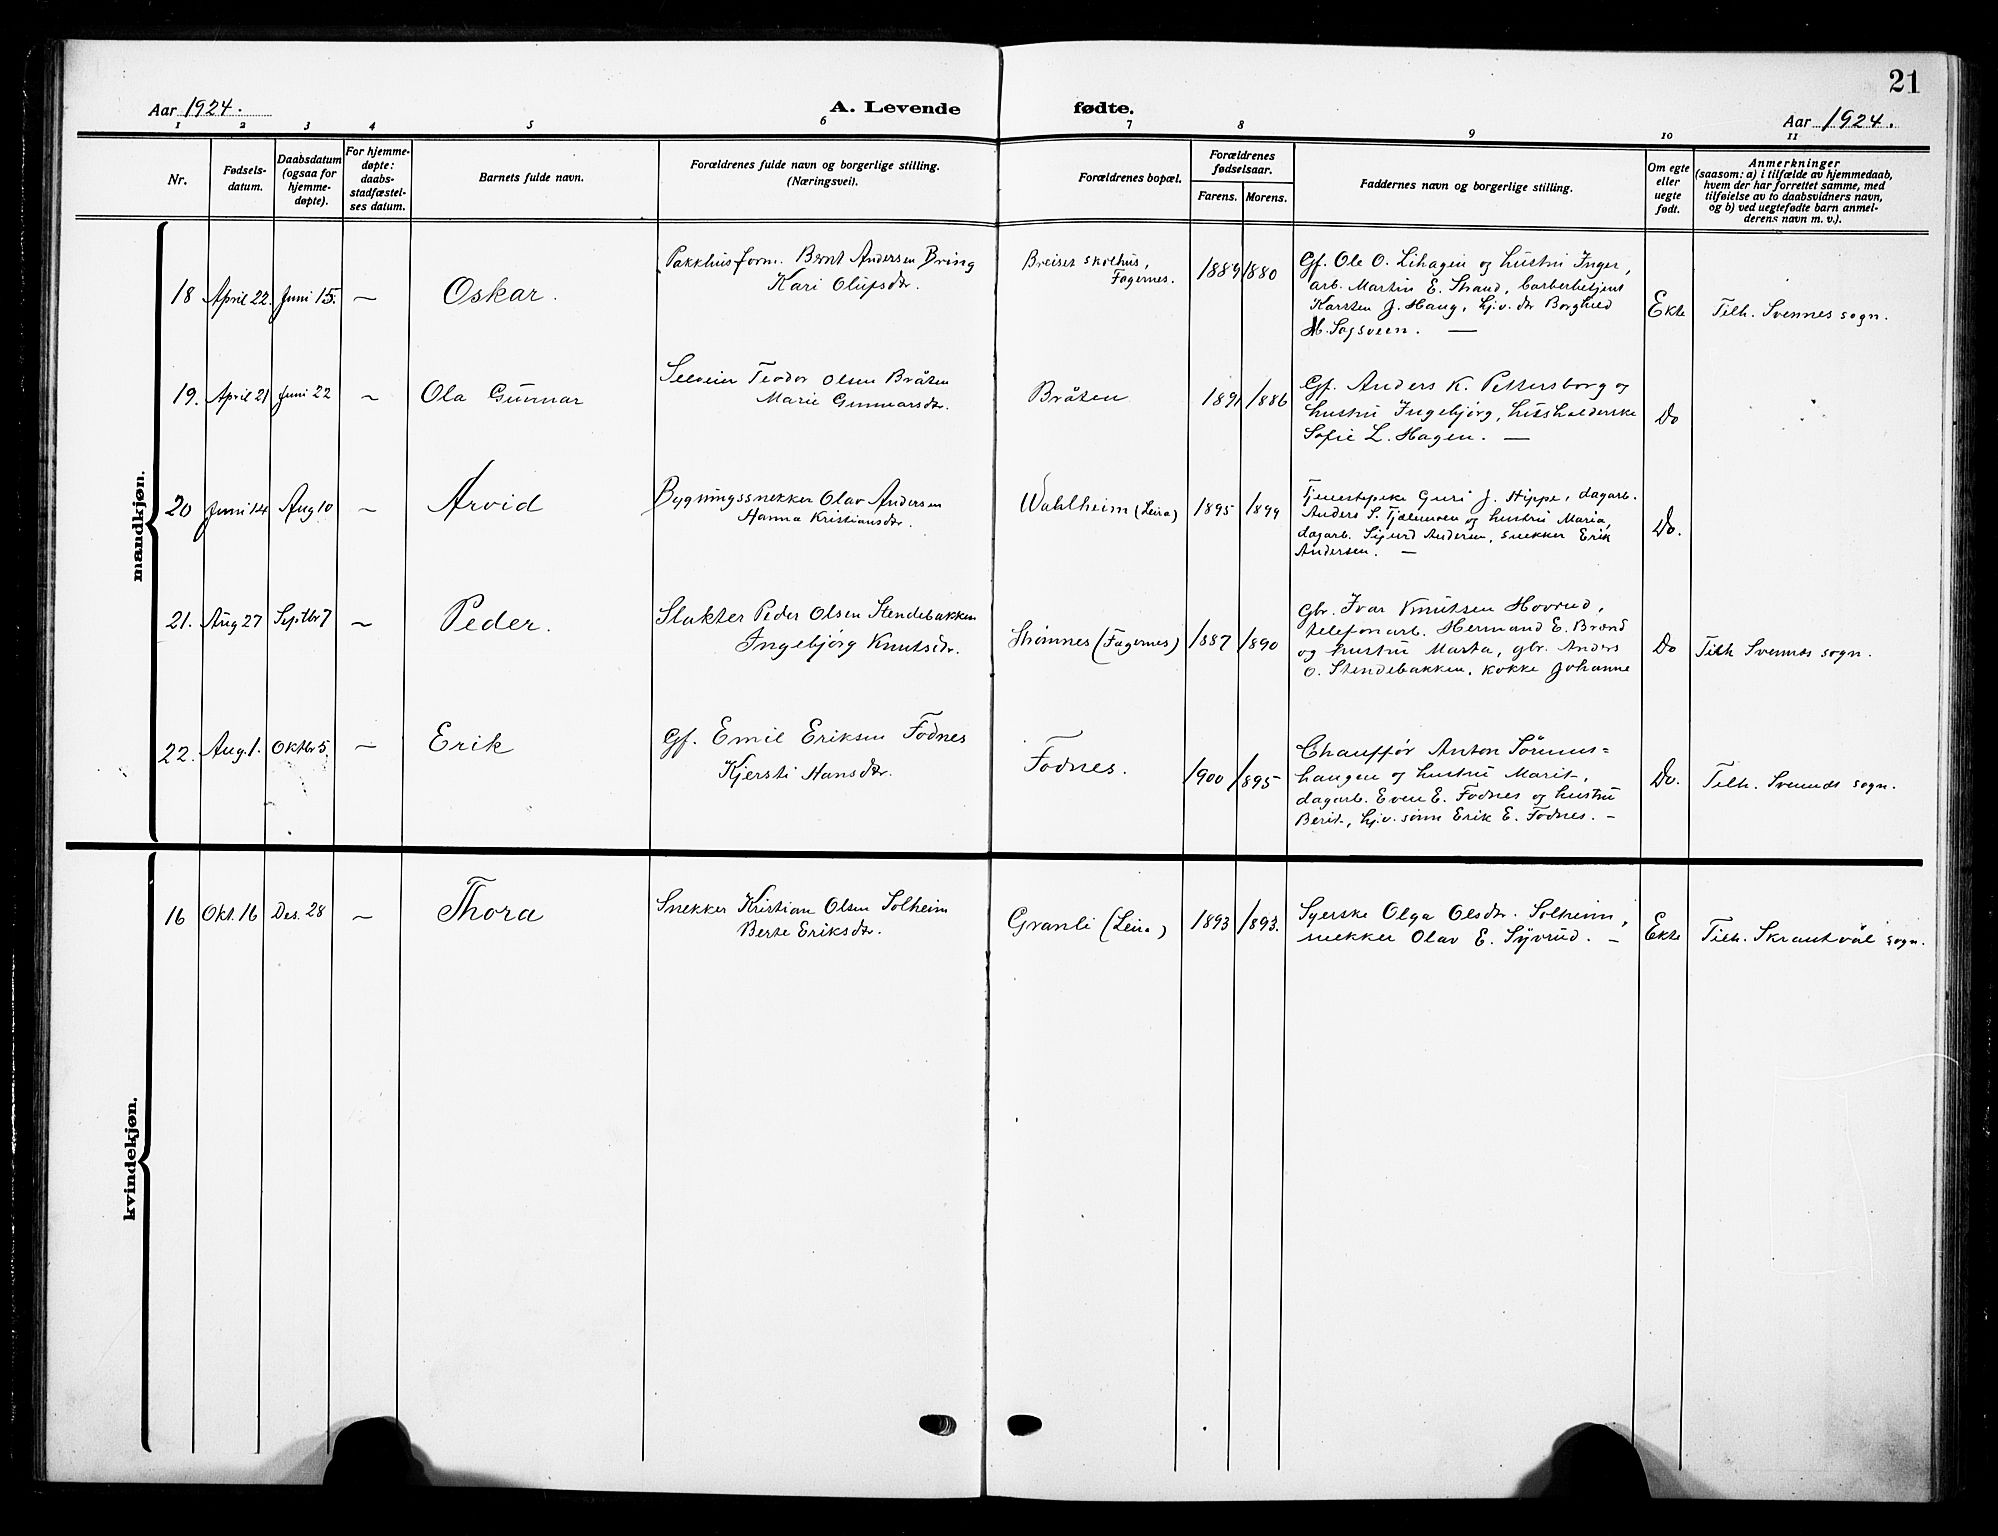 21
Aar 1924.
A. Levende fødte.
Aar 1924.
1 2 3 4 5 6 7 8 9 10 11
Nr.
Fødsels-
datum.
Daabsdatum
(ogsaa for
hjemme-
døpte).
For hjemme-
døpte:
daabs-
stadfæstel-
ses datum.
Barnets fulde navn.
Forældrenes fulde navn og borgerlige stilling.
(Næringsvei).
Forældrenes bopæl.
Forældrenes
fødselsaar.
Farens. Morens.
Faddernes navn og borgerlige stilling.
Om egte
eller
uegte
født.
Anmerkninger
(saasom: a) i tilfælde av hjemmedaab,
hvem der har forrettet samme, med
tilføielse av to daabsvidners navn,
og b) ved uegtefødte barn anmel-
derens navn m. v.).
mandkjøn.
18 April 22. Juni 15. — Oskar.
Pakkhusform. Bernt Andersen Bring
Kari Olufsdtr.
Breiset skolhus,
Fagernes.
1889 1880
Gf. Ole O. Lihagen og hustru Inger,
arb. Martin E. Strand, barberbetjent
Karsten J. Haug, hj.v. dtr Borghild
M. Sagsveen. —
Ekte
Tilh. Svennes sogn.
19. April 21 Juni 22 ~ Ola Gunnar
Teodor Olsen Bråten
Marie Gunnarsdtr.
Bråten
1891 1886
Gf. Anders K. Pettersborg og
hustru Ingebjørg, husholderske
Sofie L. Hagen. —
Do
20 Juni 14 Aug 10 ~ Arvid
Bygningssnekker Olav Andersen
Hanna Kristiansdtr.
Wahlheim (Leira)
1895 1899
Tjenestepike Guri J. Hippe, dagarb.
Anders S. og hustru Maria,
dagarb. Sigurd Andersen, snekker Erik
Andersen. —
Do.
21. Aug 27 Septbr 7 ~ Peder.
Slakter Peder Olsen Stendebakken
Ingebjørg Knutsdtr.
Strømnes (Fagernes)
1887 1890
Gbr. Ivar Knutsen Hovrud,
telefonarb. Hermand E. Brænd
og hustru Marta, gbr. Anders
O. Stendebakken, kokke Johanne
Do
Tilh Svennes sogn.
22. Aug. 1. Oktbr 5. — Erik
Gf. Emil Eriksen Fodnes
Kjersti Hansdtr.
Fodnes.
1900 1895
Chauffør Anton Sørums-
haugen og hustru Marit,
dagarb. Even E. Fodnes og hustru
Berit, hj.v. sønn Erik E. Fodnes. —
Do.
Tilh. Svennes sogn.
kvindekjøn.
16 Okt. 16 Des. 28 ~ Thora
Snekker Kristian Olsen Solheim
Berte Eriksdtr.
Granli (Leira)
1893 1893.
Syerske Olga Olsdtr. Solheim,
snekker Olav E. Syvrud. —
Ekte
Tilh. Skrautvål sogn.